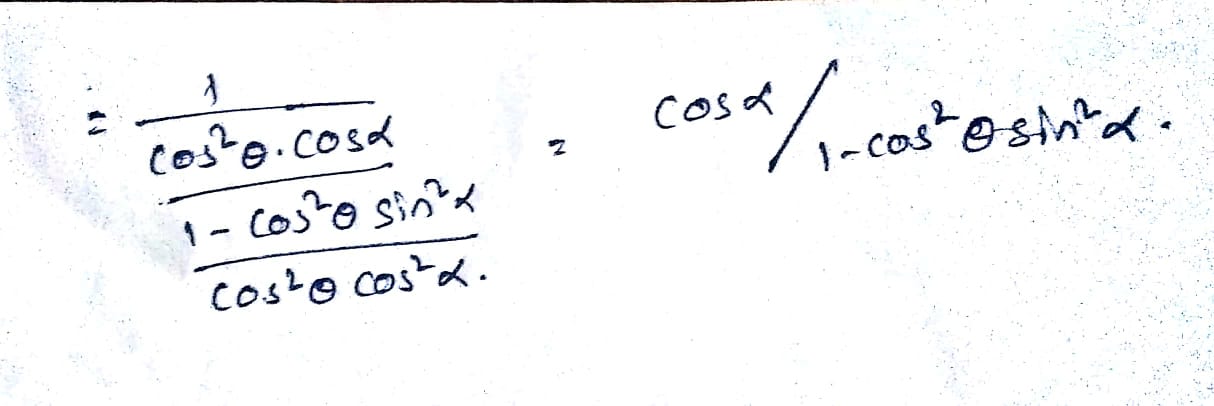 = 1 / cos²θ.cosα / 1 - cos²θ sin²α / cos²θ cos²α. = cosα / 1-cos²θ sin²α.